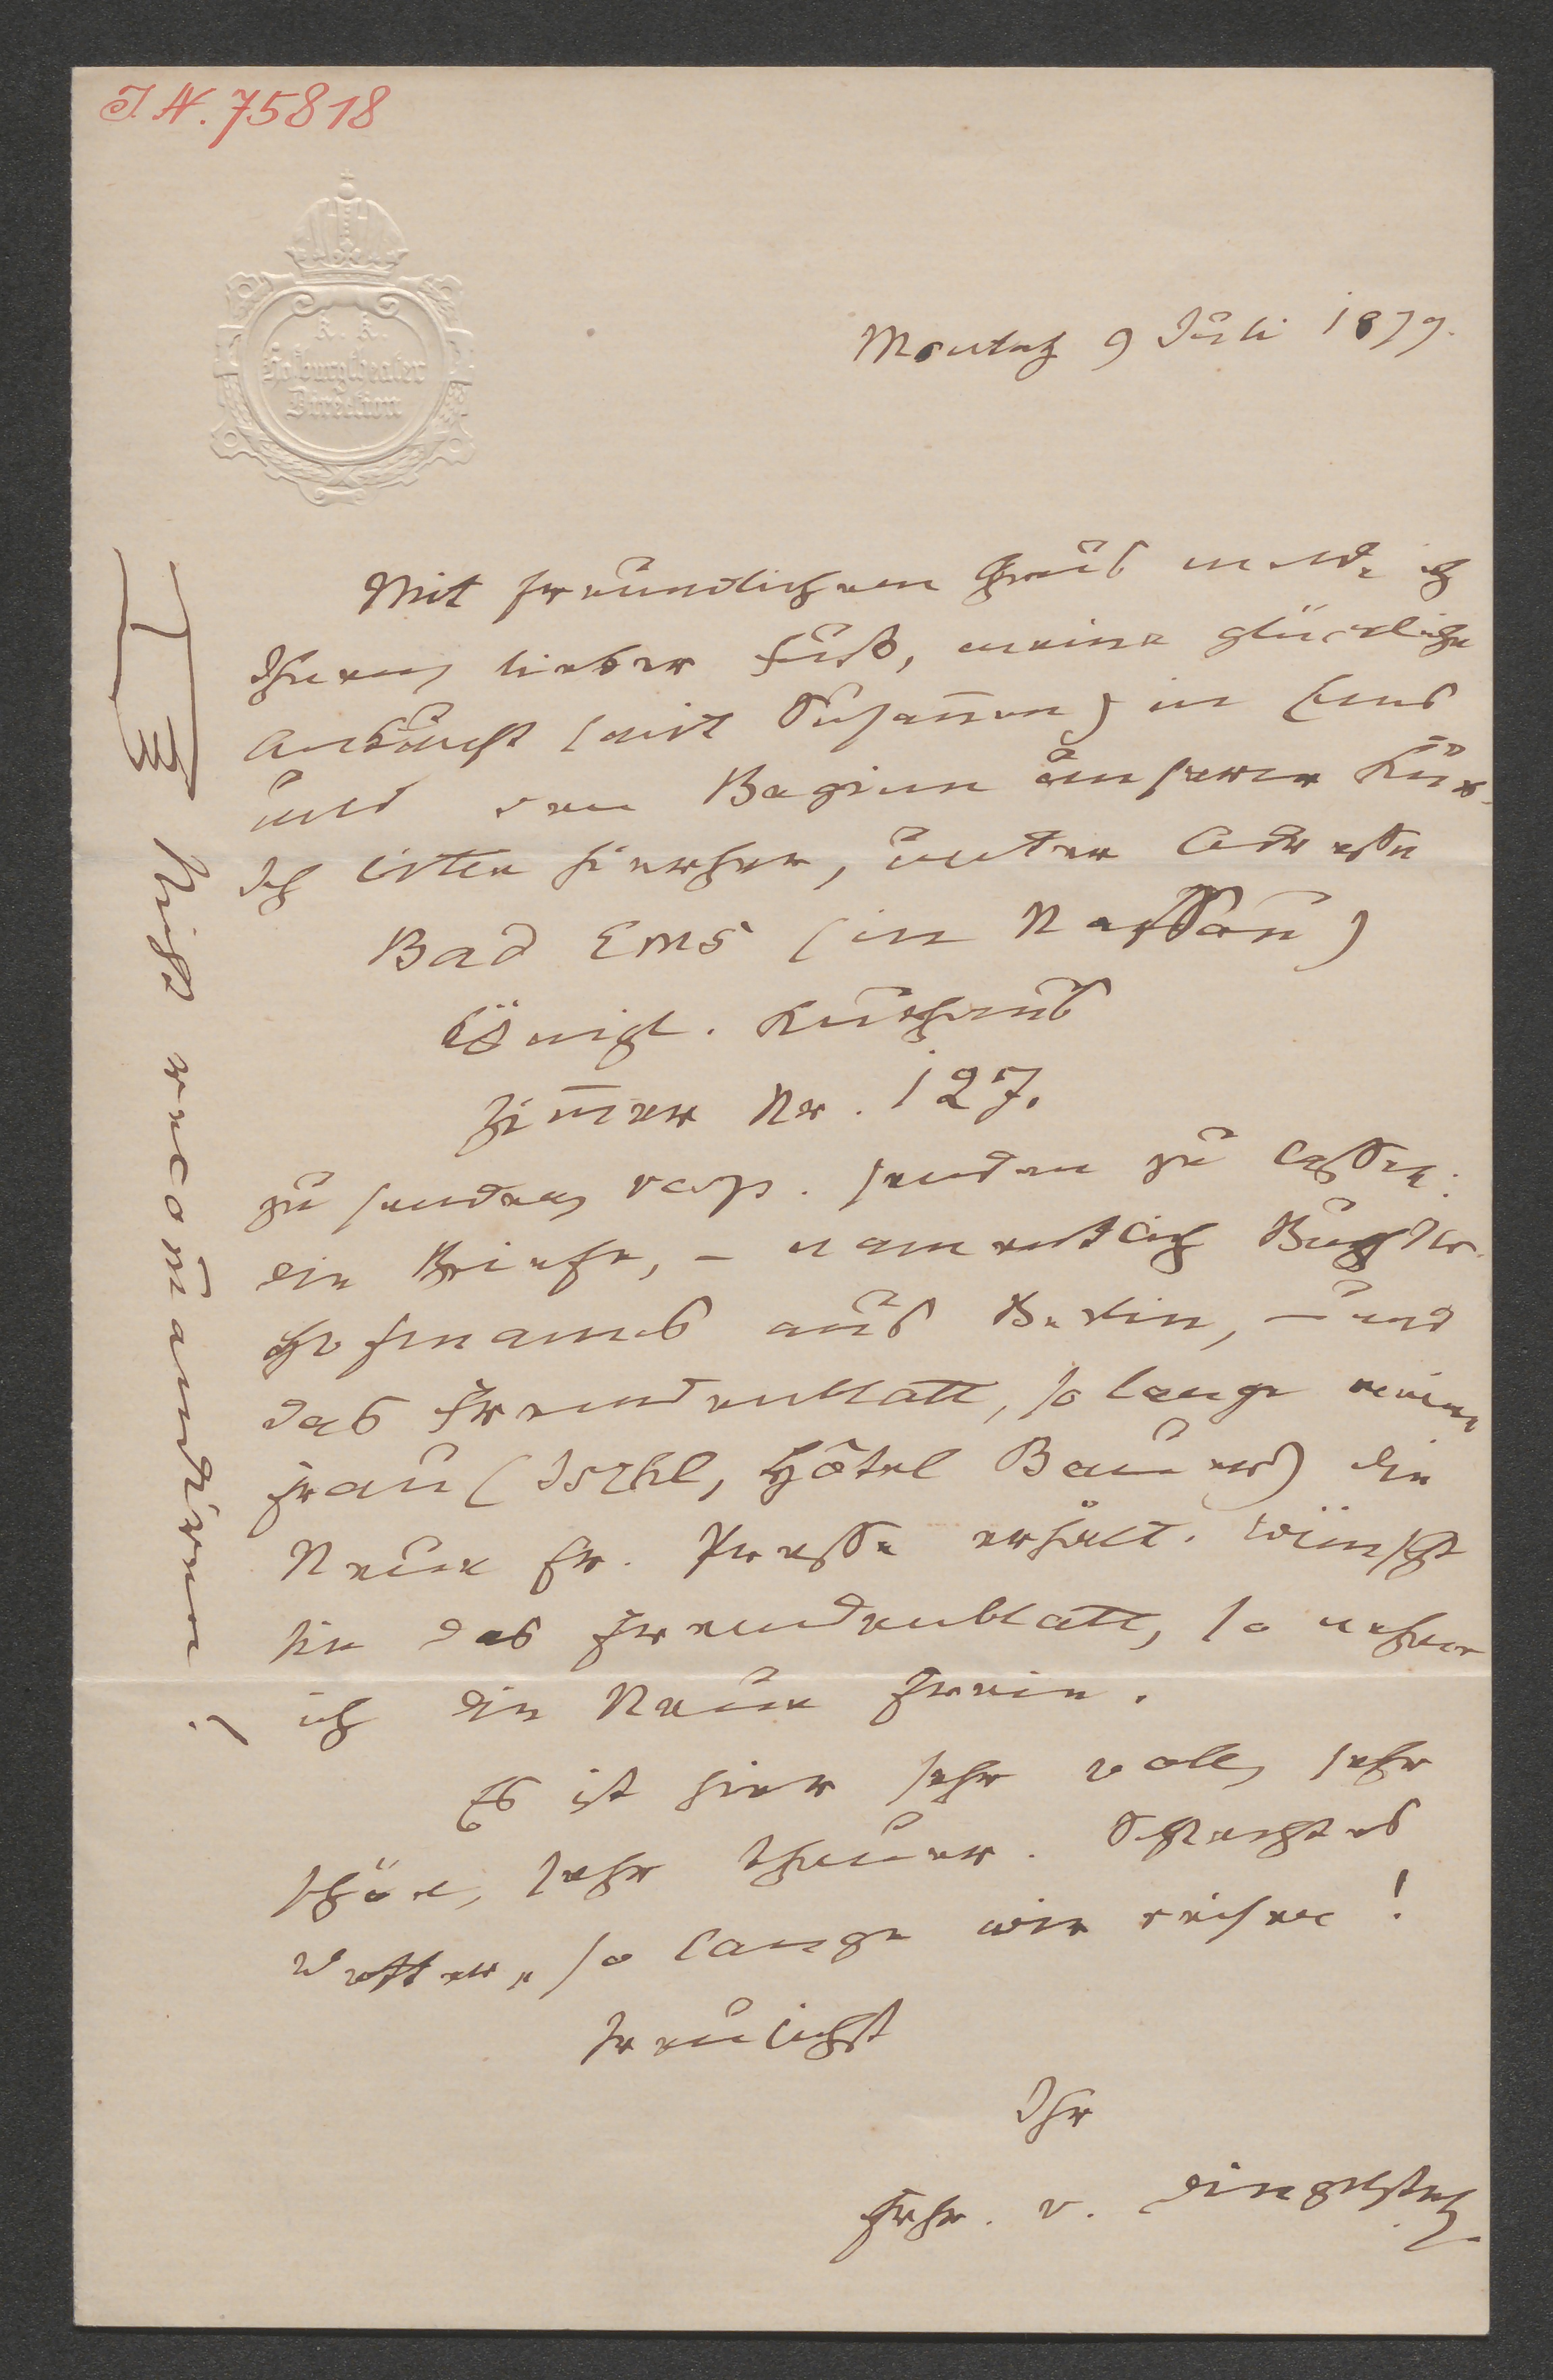 I.N. 75818
K. K.
Hofburgtheater
Direction
Montag 9 Juli 1877.
Mit freundlichem Gruß melde ich
Ihnen, lieber Fuß, meine glückliche
Ankunft (mit Susannen) in Ems
und den Beginn unserer Kur.
Ich bitte hierher, unter Adresse
Bad Ems (in Nassau)
königl. Kurhaus
Zimmer Nr. 127.
zu senden, resp. senden zu lassen:
die Briefe, – namentlich
Hofmanns aus Berlin, – und
das Fremdenblatt, so lange meine
Frau (Ischl, Hôtel Bauer) die
Neue Fr. Presse erhält. Wünscht
sie das Fremdenblatt, so nehme
ich die Neue Freie.
Es ist hier sehr voll, sehr
schön, sehr theuer. Schlechtes
Wetter, so lange wir reisen!
Treulichst
Ihr
Frhr. v. Dingelstedt
Nicht recom̄andiren!